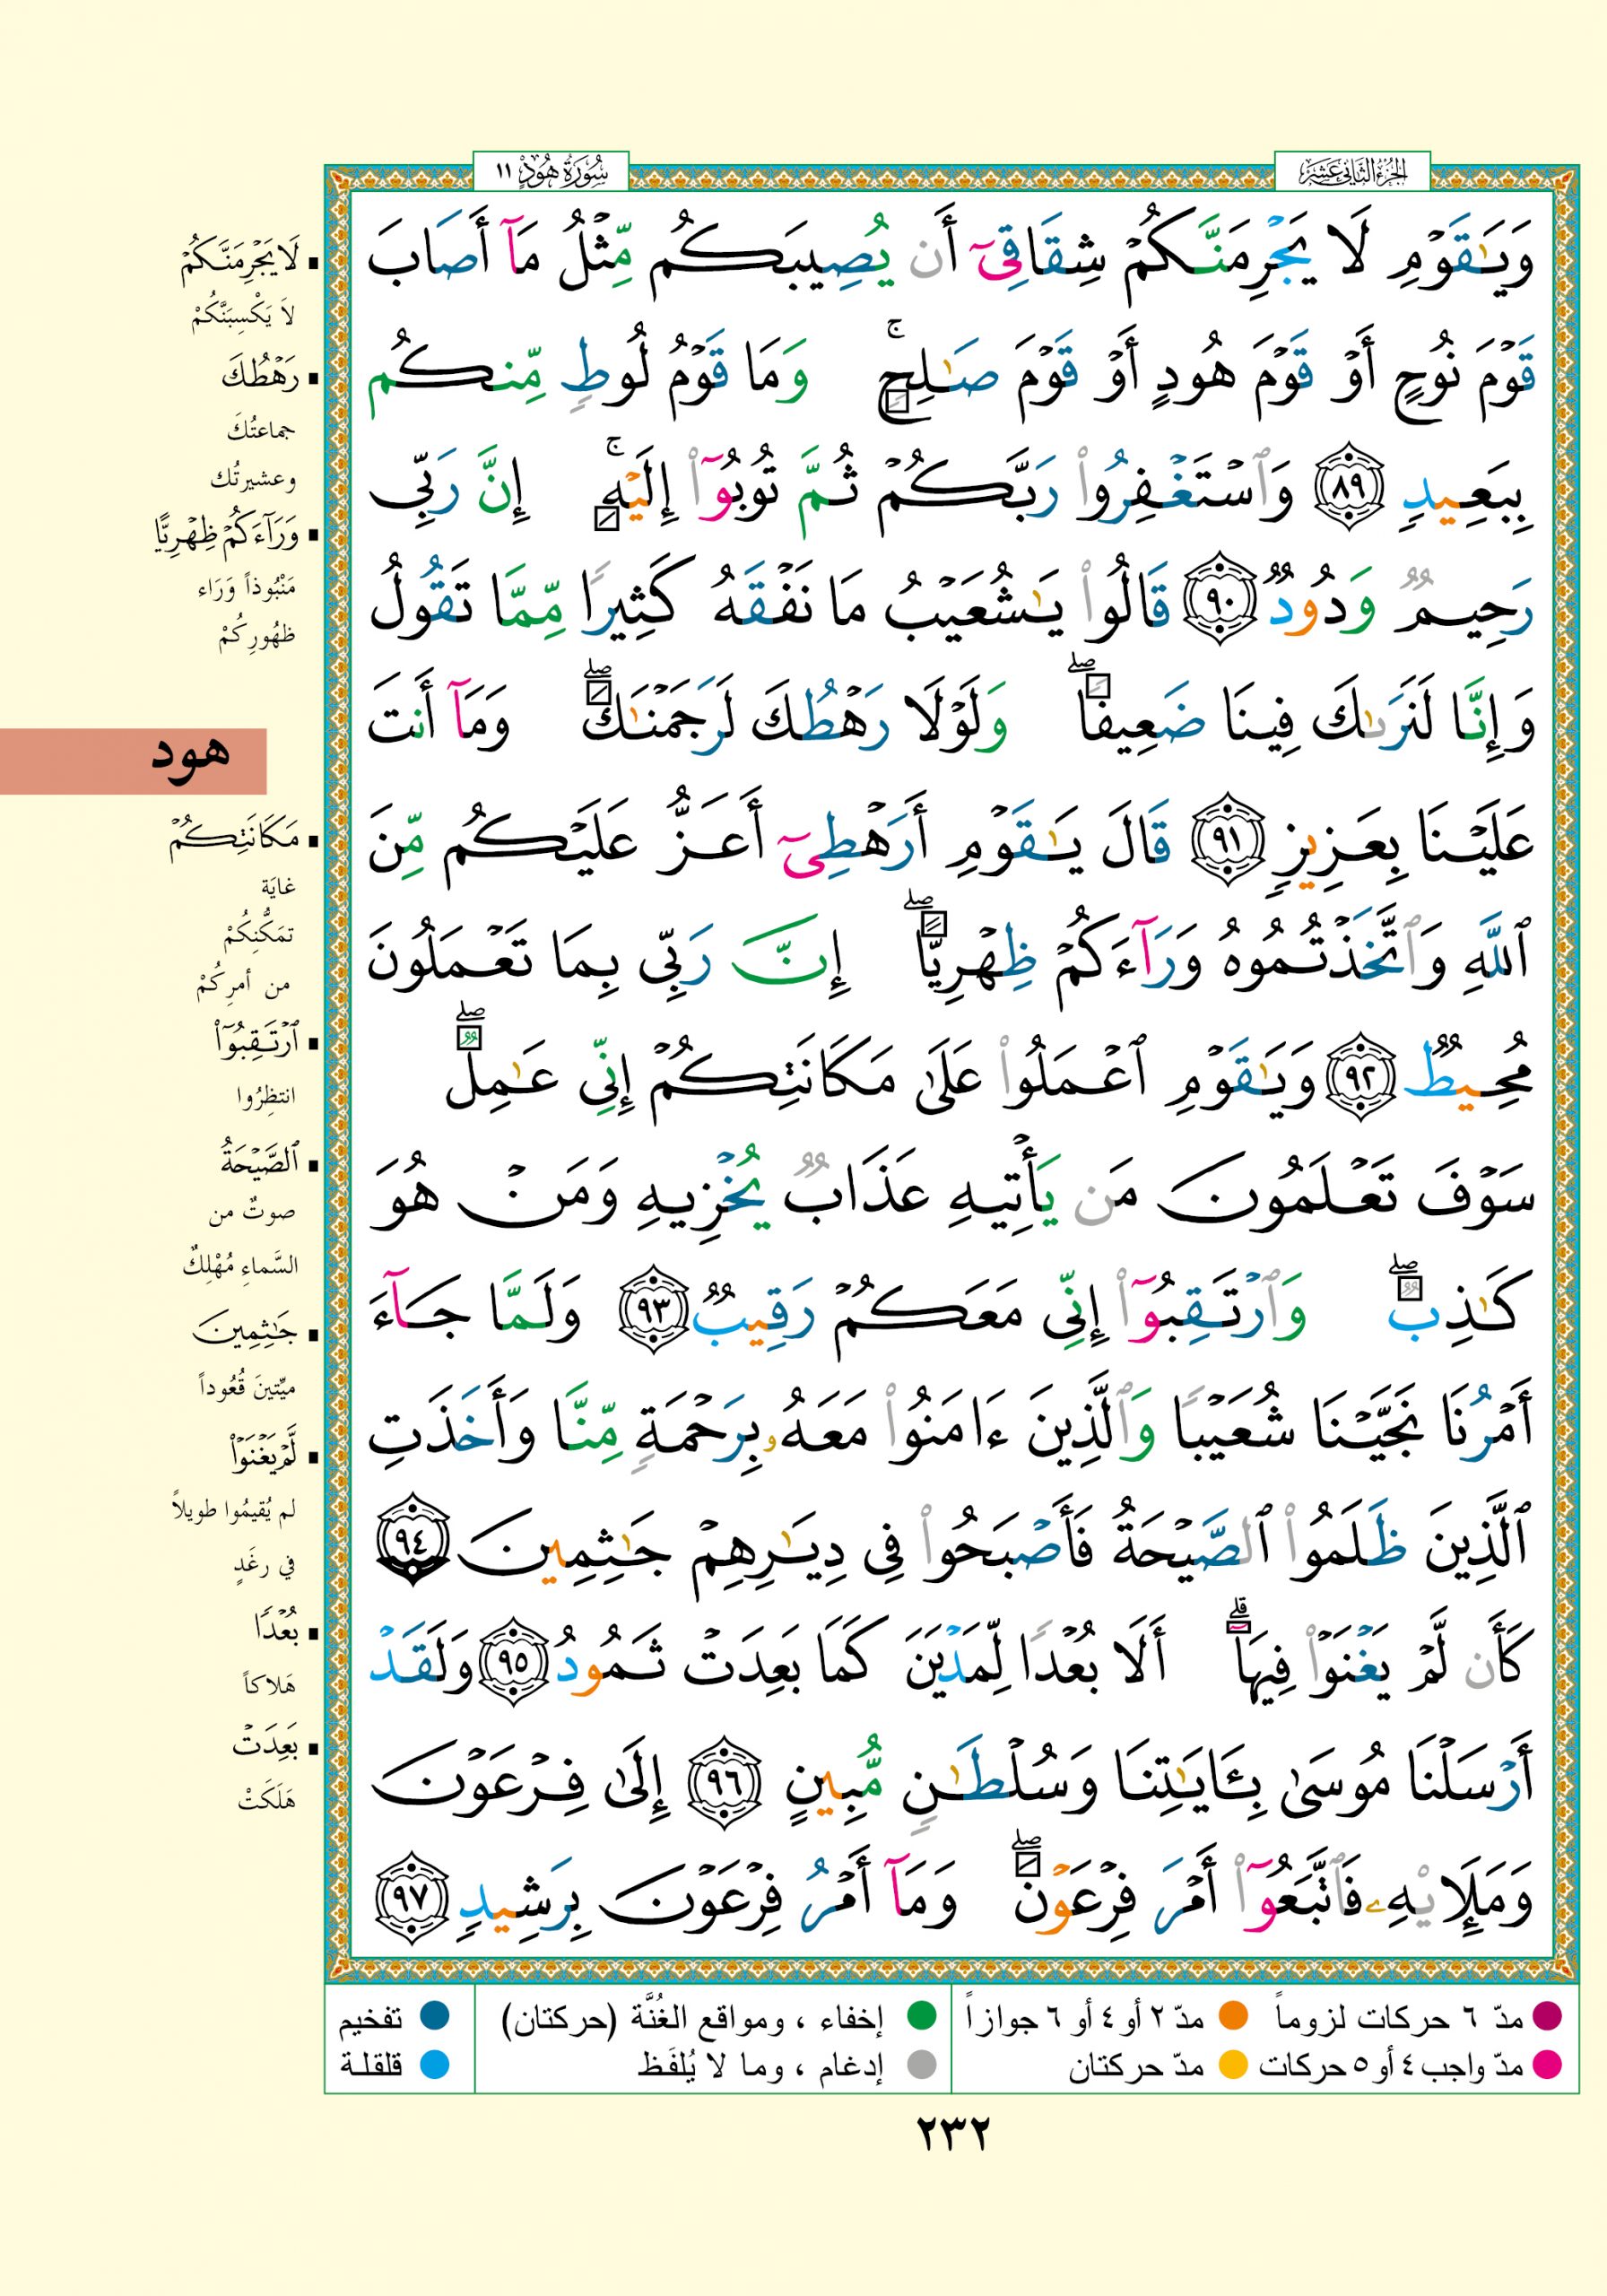 الجزء الثاني عشر
سورة هود ١١
وَيَٰقَوْمِ لَا يَجْرِمَنَّكُمْ شِقَاقِىٓ أَن يُصِيبَكُم مِّثْلُ مَآ أَصَابَ
قَوْمَ نُوحٍ أَوْ قَوْمَ هُودٍ أَوْ قَوْمَ صَٰلِحٍ ۚ وَمَا قَوْمُ لُوطٍ مِّنكُم
بِبَعِيدٍ ٨٩ وَٱسْتَغْفِرُوا۟ رَبَّكُمْ ثُمَّ تُوبُوٓا۟ إِلَيْهِ ۚ إِنَّ رَبِّى
رَحِيمٌ وَدُودٌ ٩٠ قَالُوا۟ يَٰشُعَيْبُ مَا نَفْقَهُ كَثِيرًا مِّمَّا تَقُولُ
وَإِنَّا لَنَرَىٰكَ فِينَا ضَعِيفًا ۖ وَلَوْلَا رَهْطُكَ لَرَجَمْنَٰكَ ۖ وَمَآ أَنتَ
عَلَيْنَا بِعَزِيزٍ ٩١ قَالَ يَٰقَوْمِ أَرَهْطِىٓ أَعَزُّ عَلَيْكُم مِّنَ
ٱللَّهِ وَٱتَّخَذْتُمُوهُ وَرَآءَكُمْ ظِهْرِيًّا ۖ إِنَّ رَبِّى بِمَا تَعْمَلُونَ
مُحِيطٌ ٩٢ وَيَٰقَوْمِ ٱعْمَلُوا۟ عَلَىٰ مَكَانَتِكُمْ إِنِّى عَٰمِلٌ ۖ
سَوْفَ تَعْلَمُونَ مَن يَأْتِيهِ عَذَابٌ يُخْزِيهِ وَمَنْ هُوَ
كَٰذِبٌ ۖ وَٱرْتَقِبُوٓا۟ إِنِّى مَعَكُمْ رَقِيبٌ ٩٣ وَلَمَّا جَآءَ
أَمْرُنَا نَجَّيْنَا شُعَيْبًا وَٱلَّذِينَ ءَامَنُوا۟ مَعَهُۥ بِرَحْمَةٍ مِّنَّا وَأَخَذَتِ
ٱلَّذِينَ ظَلَمُوا۟ ٱلصَّيْحَةُ فَأَصْبَحُوا۟ فِى دِيَٰرِهِمْ جَٰثِمِينَ ٩٤
كَأَن لَّمْ يَغْنَوْا۟ فِيهَآ ۗ أَلَا بُعْدًا لِّمَدْيَنَ كَمَا بَعِدَتْ ثَمُودُ ٩٥ وَلَقَدْ
أَرْسَلْنَا مُوسَىٰ بِـَٔايَٰتِنَا وَسُلْطَٰنٍ مُّبِينٍ ٩٦ إِلَىٰ فِرْعَوْنَ
وَمَلَإِي۟هِۦ فَٱتَّبَعُوٓا۟ أَمْرَ فِرْعَوْنَ ۖ وَمَآ أَمْرُ فِرْعَوْنَ بِرَشِيدٍ ٩٧
لَا يَجْرِمَنَّكُمْ
لاَ يَكْسِبَنَّكُمْ
رَهْطُكَ
جماعتُكَ
وعشيرتُك
وَرَآءَكُمْ ظِهْرِيًّا
مَنْبُوذاً وَرَاء
ظهُورِكُمْ
هود
مَكَانَتِكُمْ
غايَة
تمَكُّنِكُمْ
من أمرِكُمْ
ٱرْتَقِبُوٓا۟
انتظِرُوا
ٱلصَّيْحَةُ
صوتٌ من
السَّماءِ مُهْلِكٌ
جَٰثِمِينَ
ميِّتينَ قُعُوداً
لَّمْ يَغْنَوْا۟
لم يُقيمُوا طويلاً
في رغَدٍ
بُعْدًا
هَلاكاً
بَعِدَتْ
هَلَكَتْ
مدّ ٦ حركات لزوماً مدّ ٢ أو ٤ أو ٦ جوازاً إخفاء ، ومواقع الغُنَّة (حركتان) تفخيم
مدّ واجب ٤ أو ٥ حركات مدّ حركتان إدغام ، وما لا يُلفَظ قلقلة
٢٣٢